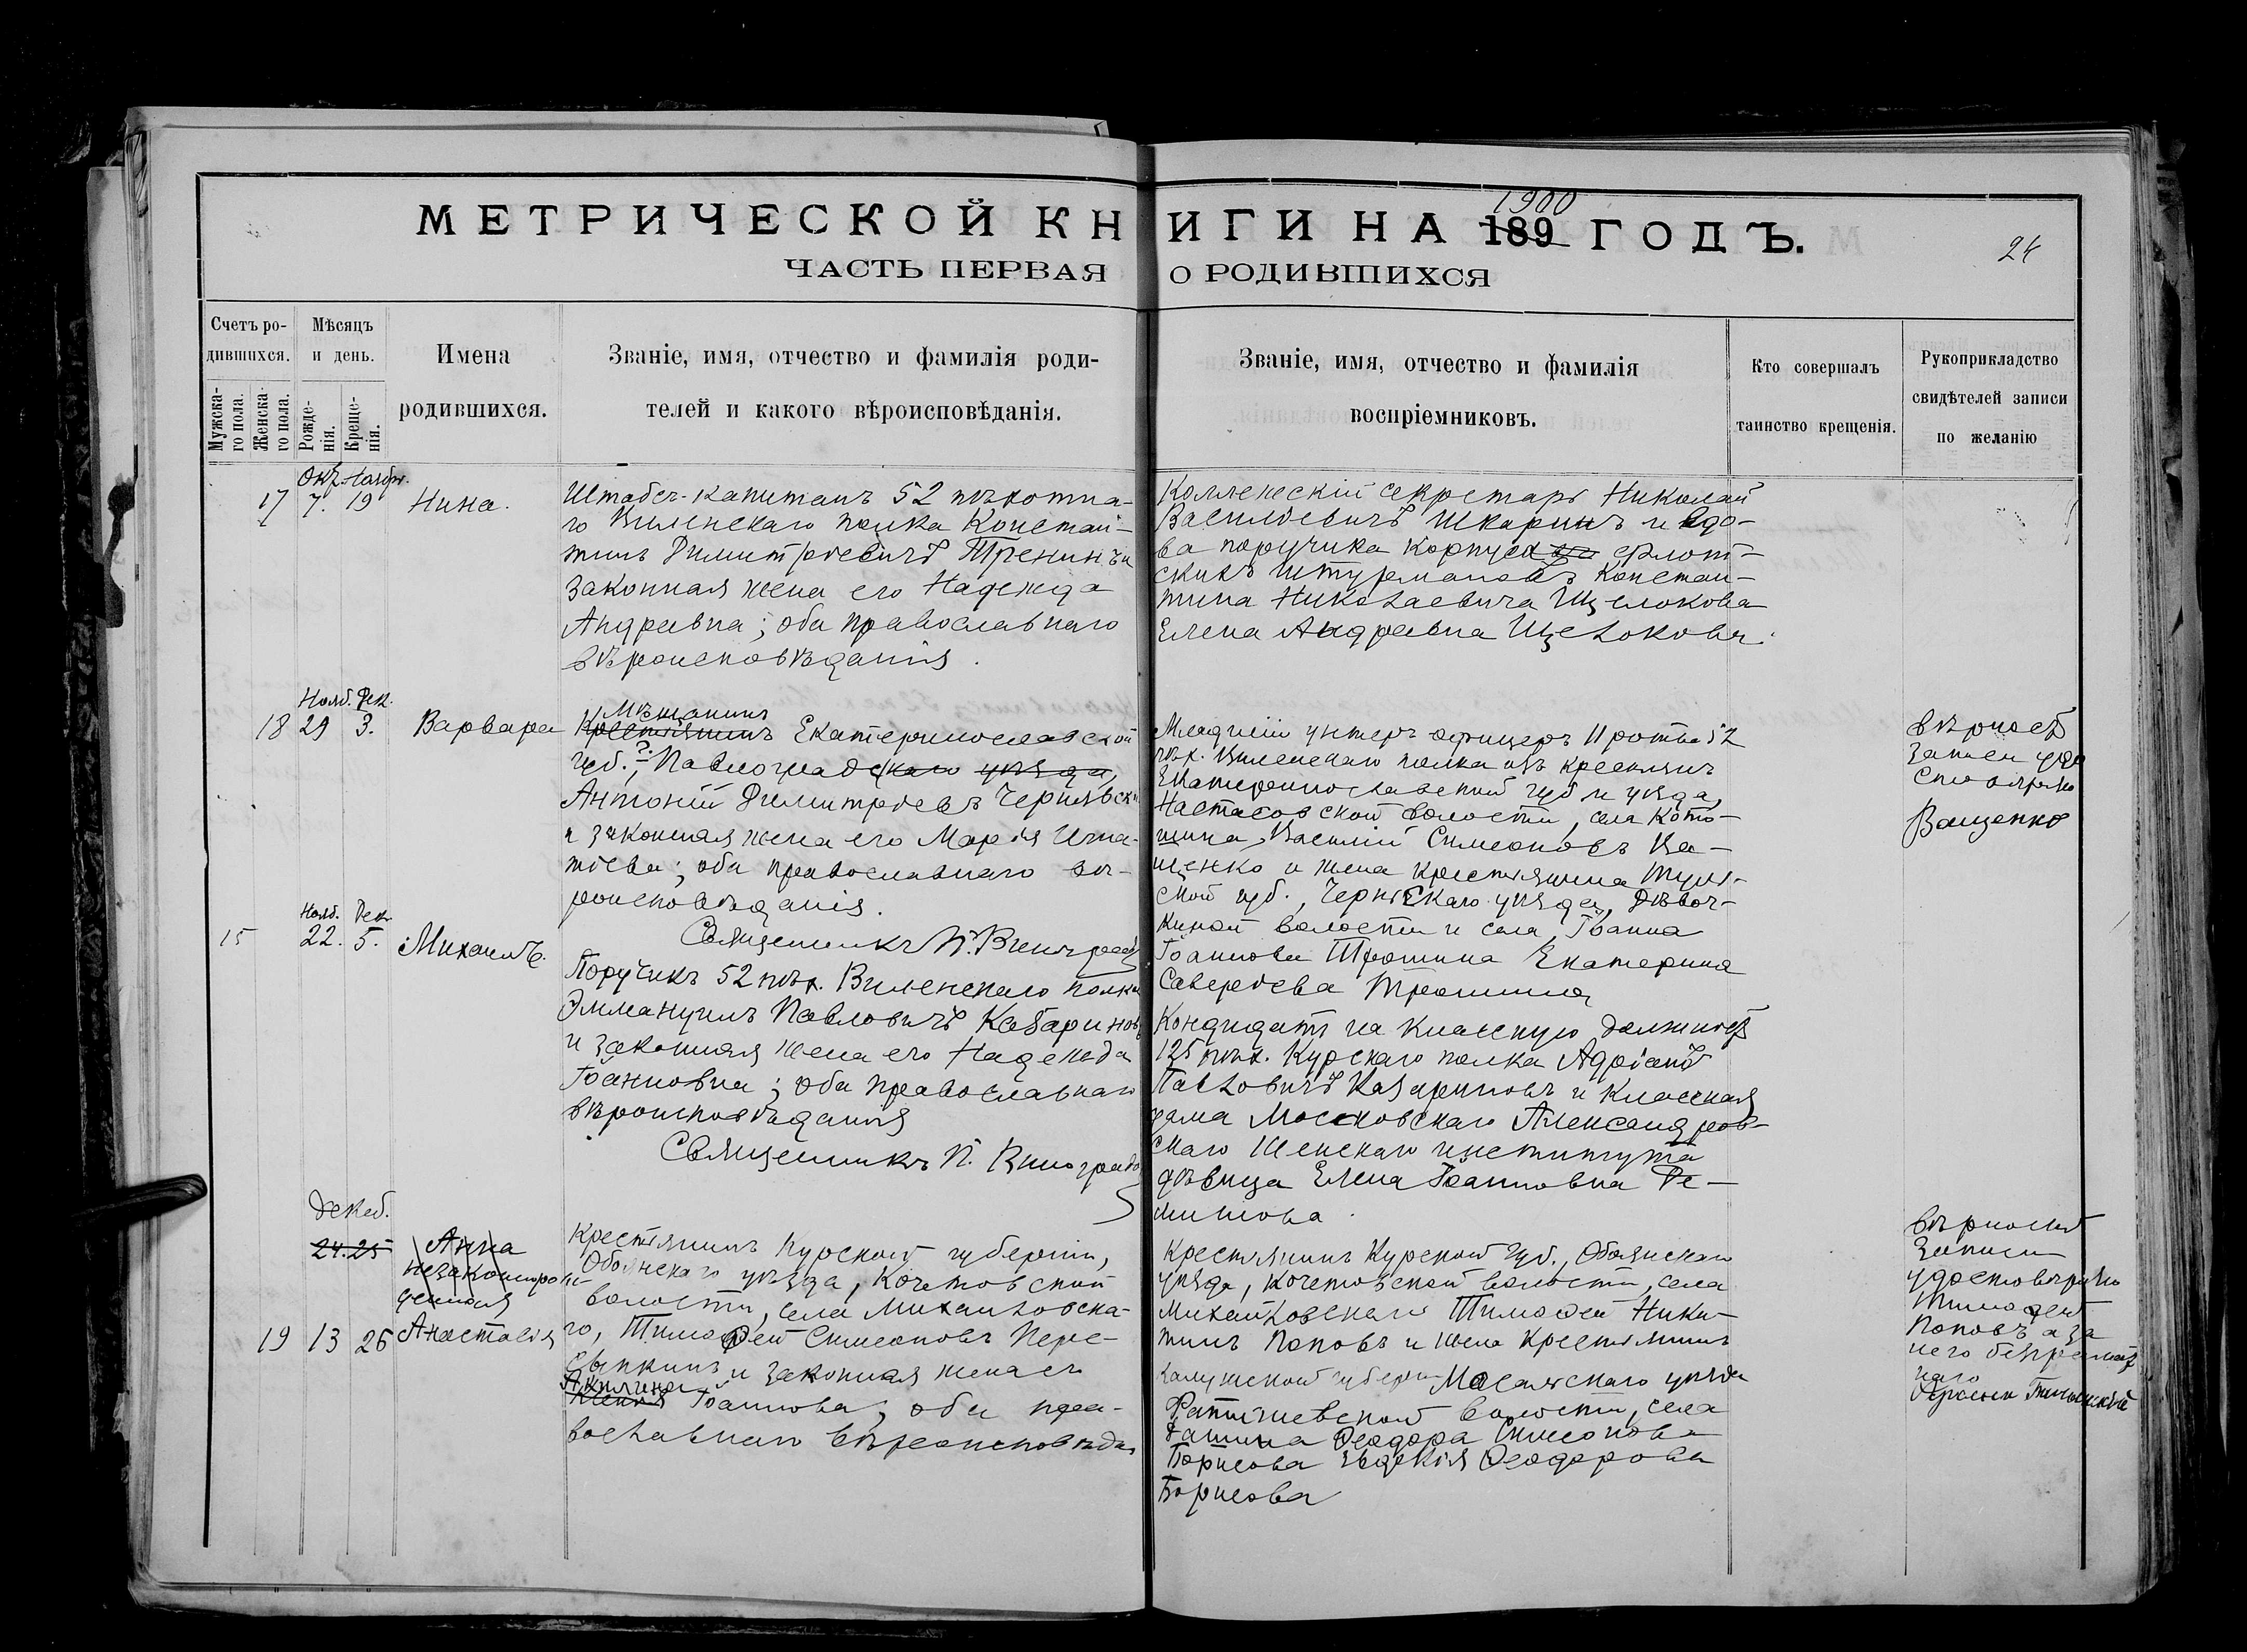 МЕТРИЧЕСКОЙ КНИГИ НА 189 1900 ГОДЪ.
24
ЧАСТЬ ПЕРВАЯ О РОДИВШИХСЯ
Счетъ ро-
дившихся.
Мужска-
го пола.
Женска-
го пола.
Мѣсяцъ
и день.
Рожде-
нія.
Креще-
нія.
Имена
родившихся.
Званіе, имя, отчество и фамилія роди-
телей и какого вѣроисповѣданія.
Званіе, имя, отчество и фамилія
воспріемниковъ.
Кто совершалъ
таинство крещенія.
Рукоприкладство
свидѣтелей записи
по желанію
Окт. Ноябр.
17 7. 19 Нина.
Штабсъ-капитанъ 52 пѣхотна-
го Виленскаго полка Констан-
тинъ Димитріевичъ Тренинъ и
законная жена его Надежда
Андреевна; оба православнаго
вѣроисповѣданія.
Коллежскій секретарь Николай
Васильевичъ Шкаринъ и вдо-
ва поручика корпуса флот-
скихъ штурмановъ Констан-
тина Николаевича Щелокова
Елена Андреевна Щелокова.
Нояб. Дек.
18 29 3. Варвара
Мѣщанинъ
Крестьянинъ Екатеринославской
губ., Павлоградскаго уѣзда,
Антоній Димитріевъ Чернявскій
и законная жена его Марія Игна-
тіева; оба православнаго вѣ-
роисповѣданія.
Священникъ П. Виноградовъ
Младшій унтеръ офицеръ 11 роты 52
пѣх. Виленскаго полка изъ крестьянъ
Екатеринославской губ. и уѣзда,
волости, села
Василій Симеоновъ Ва-
щенко и жена крестьянина Туль-
ской губ., Чернскаго уѣзда,
волости и села, Іоанна
Іоаннова Трошина Екатерина
Савельева Трошина
Вѣрность
записи удо
стовѣряю
Ващенко
Нояб. Дек.
15 22. 5. Михаилъ.
Поручикъ 52 пѣх. Виленскаго полка
Эммануилъ Павловичъ Казариновъ
и законная жена его Надежда
Іоанновна; оба православнаго
вѣроисповѣданія
Священникъ П. Виноградовъ
Кандидатъ на классную должность
125 пѣх. Курскаго полка Адріанъ
Павловичъ Казариновъ и классная
дама Московскаго Александров-
скаго женскаго института
дѣвица Елена Іоанновна Де-
Декаб.
24. 25 Анна
незаконнорож-
денная
19 13 26 Анастасія
Крестьянинъ Курской губерніи,
Обоянскаго уѣзда, Кочетовской
волости, села Михайловска-
го, Тимоѳей Симеоновъ Пере-
сыпкинъ и законная жена его
Акилина
Ксенія Іоаннова; оба пра-
вославнаго вѣроисповѣдан
Крестьянинъ Курской губ., Обоянскаго
уѣзда, Кочетовской волости, села
Михайловскаго Тимоѳей Ники-
тинъ Поповъ и жена крестьянина
Калужской губерн. Мосальскаго уѣзда
волости, села
Ѳеодора Симеонова
Борисова Евдокія Ѳеодорова
Борисова
Вѣрность
записи
удостовѣряю
Тимоѳей
Поповъ а за
него безграмот
наго